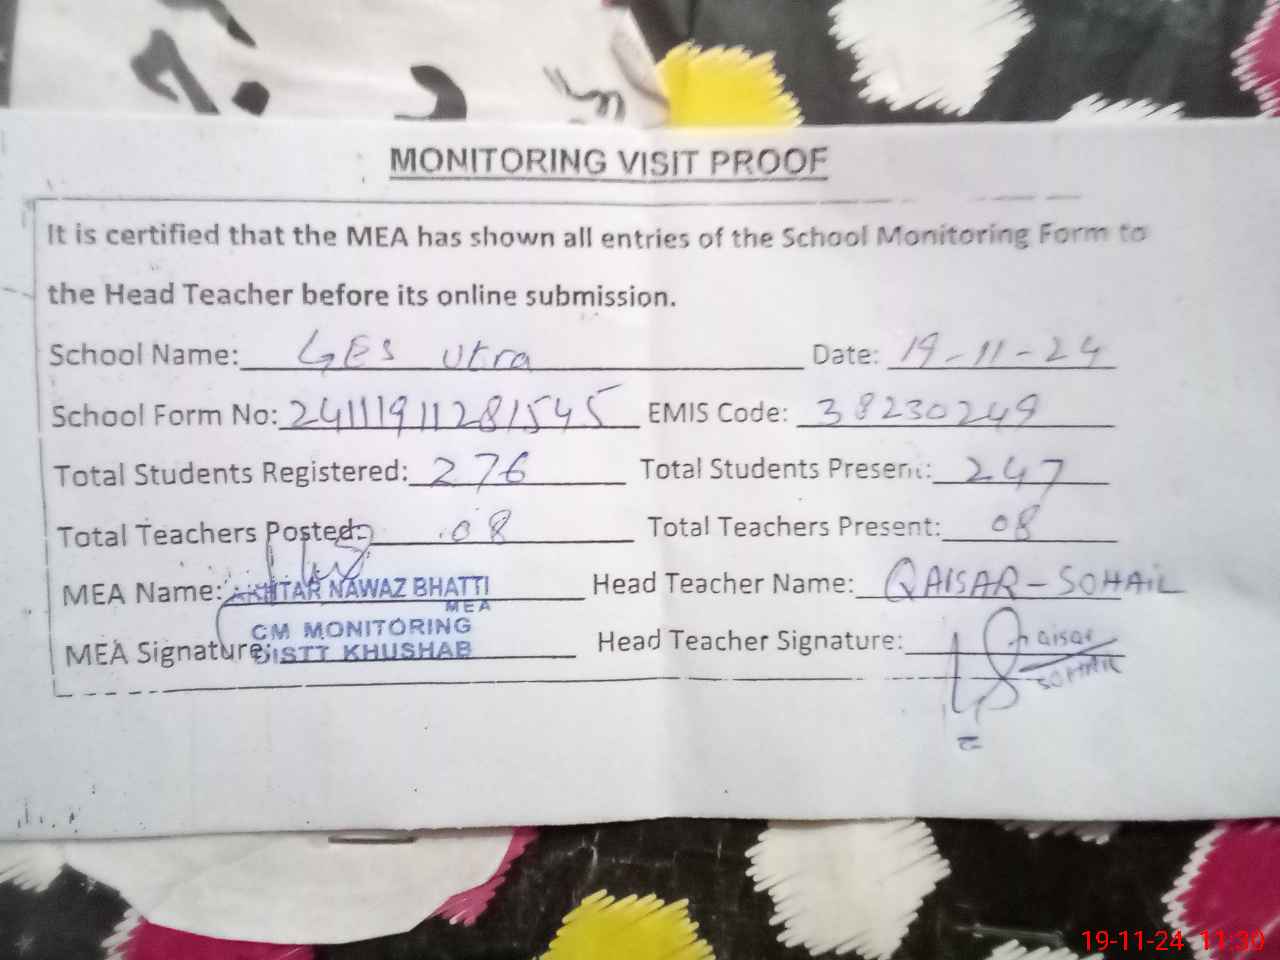 MONITORING VISIT PROOF
It is certified that the MEA has shown all entries of the School Monitoring Form to
the Head Teacher before its online submission.
School Name: GES Utra Date: 19-11-24
School Form No: 24111911281545 EMIS Code: 38230249
Total Students Registered: 276 Total Students Present: 247
Total Teachers Posted: 08 Total Teachers Present: 08
MEA Name: AKHTAR NAWAZ BHATTI Head Teacher Name: QAISAR-SOHAIL
MEA
CM MONITORING
MEA Signature: DISTT KHUSHAB Head Teacher Signature: Qaisar
SOHAIL
19-11-24 11:30